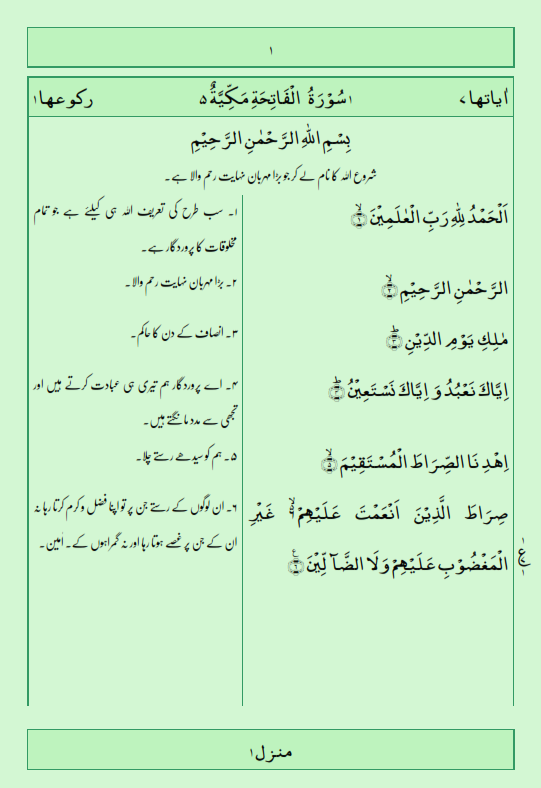 ۱
اٰیاتها۷ ۱سُوْرَةُ الْفَاتِحَةِ مَكِّيَّةٌ۵ رکوعها۱
بِسْمِ اللّٰهِ الرَّحْمٰنِ الرَّحِیْمِ
شروع اللہ کا نام لے کر جو بڑا مہربان نہایت رحم والا ہے۔
اَلْحَمْدُ لِلّٰهِ رَبِّ الْعٰلَمِیْنَۙ﴿۱﴾
۱۔ سب طرح کی تعریف اللہ ہی کیلئے ہے جو تمام
مخلوقات کا پروردگار ہے۔
الرَّحْمٰنِ الرَّحِیْمِۙ﴿۲﴾
۲۔ بڑا مہربان نہایت رحم والا۔
مٰلِكِ یَوْمِ الدِّیْنِؕ﴿۳﴾
۳۔ انصاف کے دن کا حاکم۔
اِیَّاكَ نَعْبُدُ وَ اِیَّاكَ نَسْتَعِیْنُؕ﴿۴﴾
۴۔ اے پروردگار ہم تیری ہی عبادت کرتے ہیں اور
تجھی سے مدد مانگتے ہیں۔
اِهْدِ نَا الصِّرَاطَ الْمُسْتَقِیْمَۙ﴿۵﴾
۵۔ ہم کو سیدھے رستے چلا۔
صِرَاطَ الَّذِیْنَ اَنْعَمْتَ عَلَیْهِمْ۬ۙ غَیْرِ
الْمَغْضُوْبِ عَلَیْهِمْ وَ لَا الضَّآ لِّیْنَ۠﴿۶﴾
۶۔ ان لوگوں کے رستے جن پر تو اپنا فضل و کرم کرتا رہا نہ
ان کے جن پر غصے ہوتا رہا اور نہ گمراہوں کے۔ اٰمین۔
ع
منزل۱